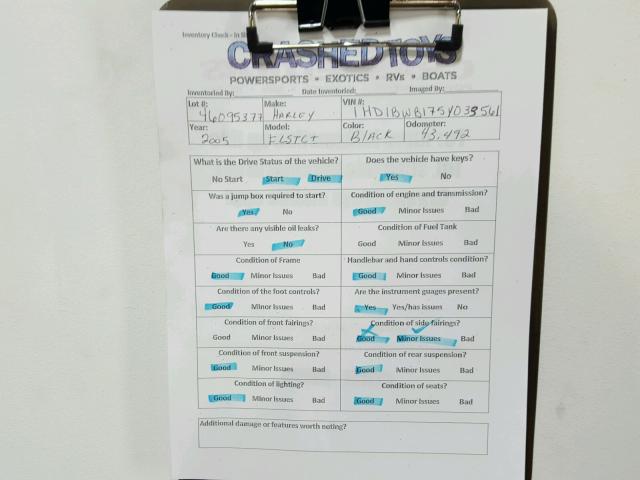 Inventory Check - In
CRASHEDTOYS
POWERSPORTS • EXOTICS • RVs • BOATS
Inventoried By: Date Inventoried: Imaged By:
Lot #: Make: VIN #:
46095377 HARLEY 1HD1BWB175Y033561
Year: Model: Color: Odometer:
2005 FLSTCI Black 43,492
What is the Drive Status of the vehicle? Does the vehicle have keys?
No Start Start Drive Yes No
Was a jump box required to start? Condition of engine and transmission?
Yes No Good Minor Issues Bad
Are there any visible oil leaks? Condition of Fuel Tank
Yes No Good Minor Issues Bad
Condition of Frame Handlebar and hand controls condition?
Good Minor Issues Bad Good Minor Issues Bad
Condition of the foot controls? Are the instrument guages present?
Good Minor Issues Bad Yes Yes/has issues No
Condition of front fairings? Condition of side fairings?
Good Minor Issues Bad Good Minor Issues Bad
Condition of front suspension? Condition of rear suspension?
Good Minor Issues Bad Good Minor Issues Bad
Condition of lighting? Condition of seats?
Good Minor Issues Bad Good Minor Issues Bad
Additional damage or features worth noting?